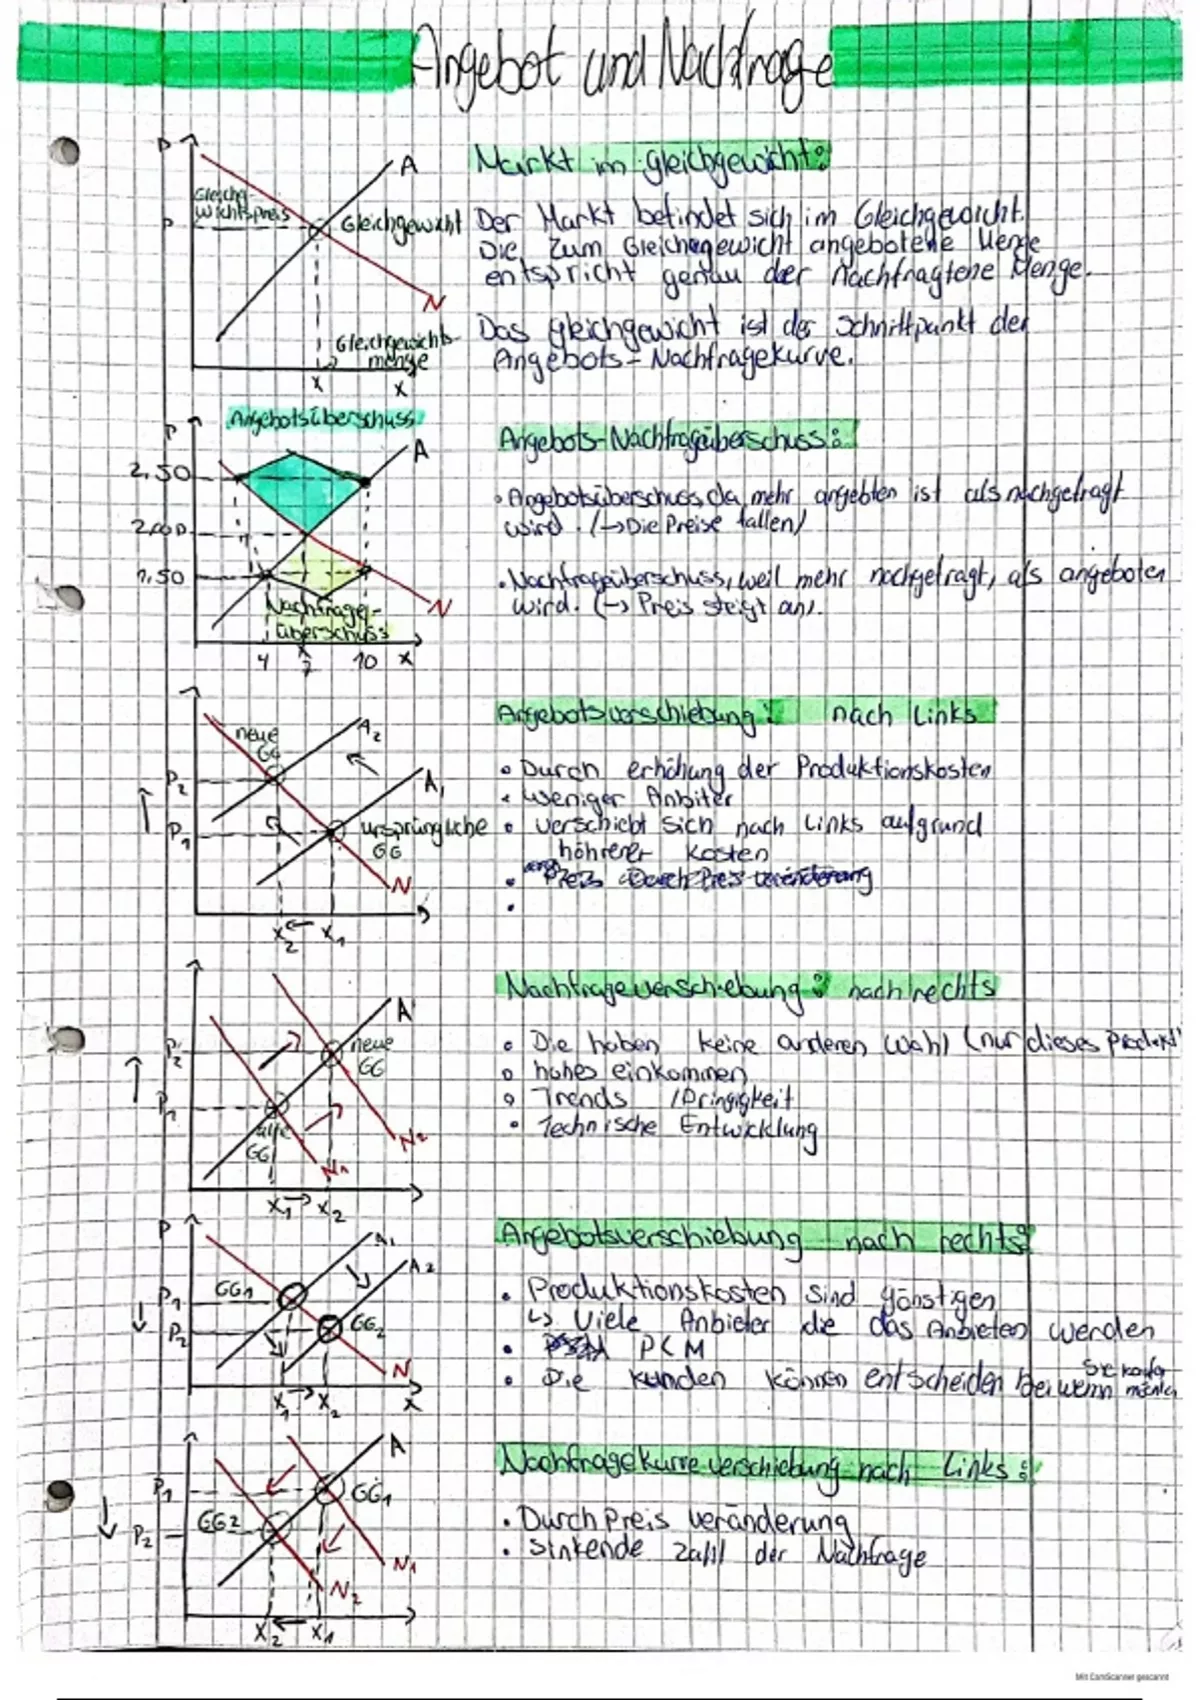 Angebot und Nachfrage
P
A
Gleichge-
wichtspreis
P
Gleichgewicht
N
Gleichgewichts-
menge
x
x
Markt im gleichgewicht:
Der Markt befindet sich im Gleichgewicht.
Die zum Gleichgewicht angebotene Menge
entspricht genau der Nachfragtene Menge.
Das gleichgewicht ist der Schnittpunkt der
Angebots- Nachfragekurve.
Angebotsüberschuss
P
A
2,50
2,00
1,50
N
Nachfrage-
überschuss
4
7
10
x
Angebots-Nachfragüberschuss:
• Angebotsüberschuss, da mehr angebten ist als nachgefragt
wird. (→Die Preise fallen)
• Nachfrageüberschuss, weil mehr nachgefragt, als angeboten
wird. (→ Preis steigt an).
neue
GG
A2
A1
P2
P1
ursprüngliche
GG
N
x2 ← x1
Angebotsverschiebung: nach Links
• Durch erhöhung der Produktionskosten
• weniger Anbiter
• verschiebt sich nach Links aufgrund
höhrerer Kosten
A
P2
neue
GG
P1
alte
GG
N2
N1
x1 → x2
Nachfrageverschiebung: nach rechts
• Die haben keine anderen Wahl (nur dieses Produkt
• hohes einkommen
• Trends /Dringigkeit
• Technische Entwicklung
P
A1
A2
GG1
P1
P2
GG2
N
x1 → x2
x
Angebotsverschiebung nach rechts:
• Produktionskosten sind günstigen
↳ Viele Anbieter die das Anbieten werden
• P<M
• Die kunden können entscheiden bei wenn Sie kaufen
A
P1
GG1
GG2
P2
N1
N2
x2 ← x1
Nachfragekurve verschiebung nach Links:
• Durch Preis veränderung
• sinkende Zahl der Nachfrage
Mit CamScanner gescannt